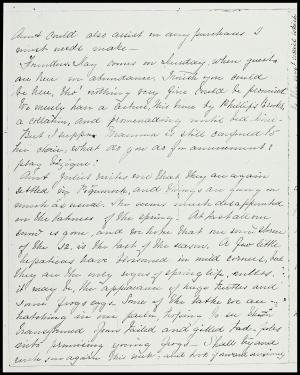 Aunt could also assist in any purchases I
must needs make —
Founders Day comes on Sunday, when guests
are here in abundance. I wish you could
be here, tho' nothing very fine could be promised
We merely have a lecture, this time by Phillips Brooks,
a collation, and promenading until bed time.
But I suppose Mamma is still confined to
her chair, what do you do for amusement?
play Bezique?
Aunt Juliet writes me that they are again
settled and things are going on
much as usual. She seems much disappointed
in the lateness of the spring. At last all our
snow is gone, and we hope that our snow storm
of the 12, is the last of the season. A few little
hepaticas have blossomed in mild corners, but
they are the only signs of spring life, unless
it may be, the appearance of huge turtles and
frogs eggs. Some of the latter we are
hatching in our
transformed from tailed and gilled tad-poles
into promising young frogs. I shall try and
this week, and look forward anxiously